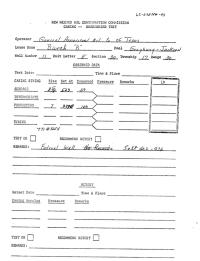 NEW MEXICO OIL CONSERVATION COMMISSION
CASING -- BRADENHEAD TEST
Operator General American Oil Co of Texas
Lease Name Beech "B" Pool Grayburg-Jackson
Well Number Unit Letter Section Township 17 Range
OBSERVED DATA
Test Date: Time & Place
CASING STRING Size Set at Cemented Pressure Remarks
SURFACE
INTERMEDIATE
PRODUCTION
TUBING
TEST OK RECOMMEND RETEST
REMARKS: Federal Well No Records
RETEST
Retest Date Time & Place
CASING STRING Pressure Remarks
TEST OK RECOMMEND RETEST
REMARKS: